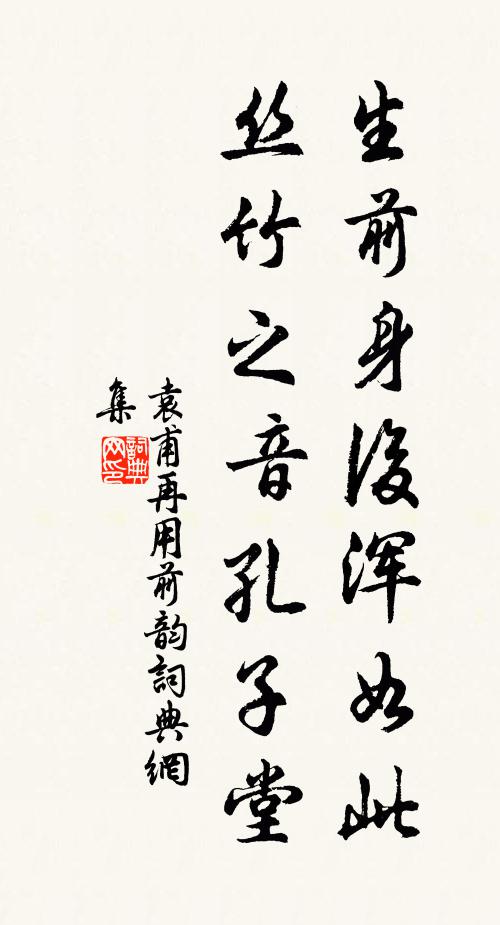 生前身後渾如此
丝竹之音孔子堂
袁甫再用前韵詞典網
集
詞典
网印